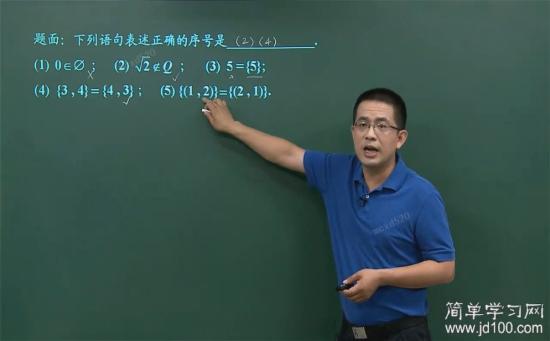 题面：下列语句表述正确的序号是 (2) (4) .
(1) 0∈∅ ; (2) √2∉Q ; (3) 5={5};
(4) {3,4}={4,3} ; (5) {(1,2)}={(2,1)}.
mcxd520
简单学习网
www.jd100.com